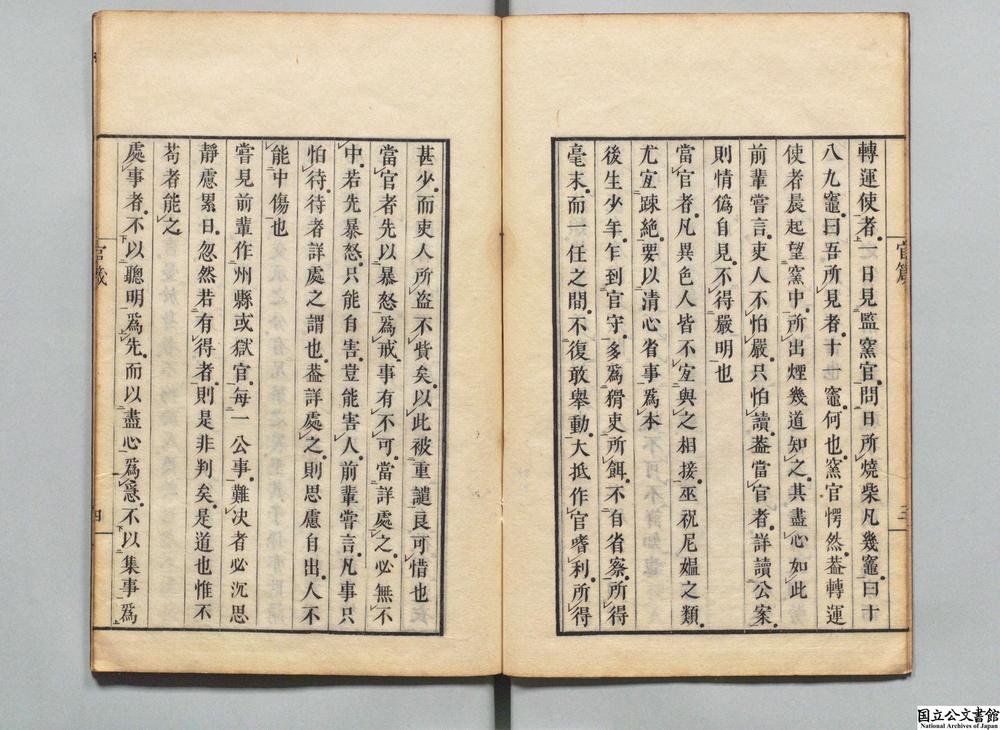 轉運使者一日見監窯官問日所燒柴凡幾竈曰十
八九竈曰吾所見者十一竈何也窯官愕然葢轉運
使者晨起望窯中所出煙幾道知之其盡心如此
前輩嘗言吏人不怕嚴只怕讀葢當官者詳讀公案
則情僞自見不得嚴明也
當官者凡異色人皆不宐與之相接巫祝尼媼之類
尤宐踈絶要以清心省事爲本
後生少年乍到官守多爲猾吏所餌不自省察所得
毫末而一任之間不復敢舉動大抵作官嗜利所得
官箴
三
甚少而吏人所盗不貲矣以此被重譴良可惜也
當官者先以暴怒爲戒事有不可當詳處之必無不
中若先暴怒只能自害豈能害人前輩嘗言凡事只
怕待待者詳處之謂也葢詳處之則思慮自出人不
能中傷也
嘗見前輩作州縣或獄官每一公事難决者必沉思
靜慮累日忽然若有得者則是非判矣是道也惟不
苟者能之
處事者不以聰明爲先而以盡心爲急不以集事爲
官箴
四
国立公文書館
National Archives of Japan